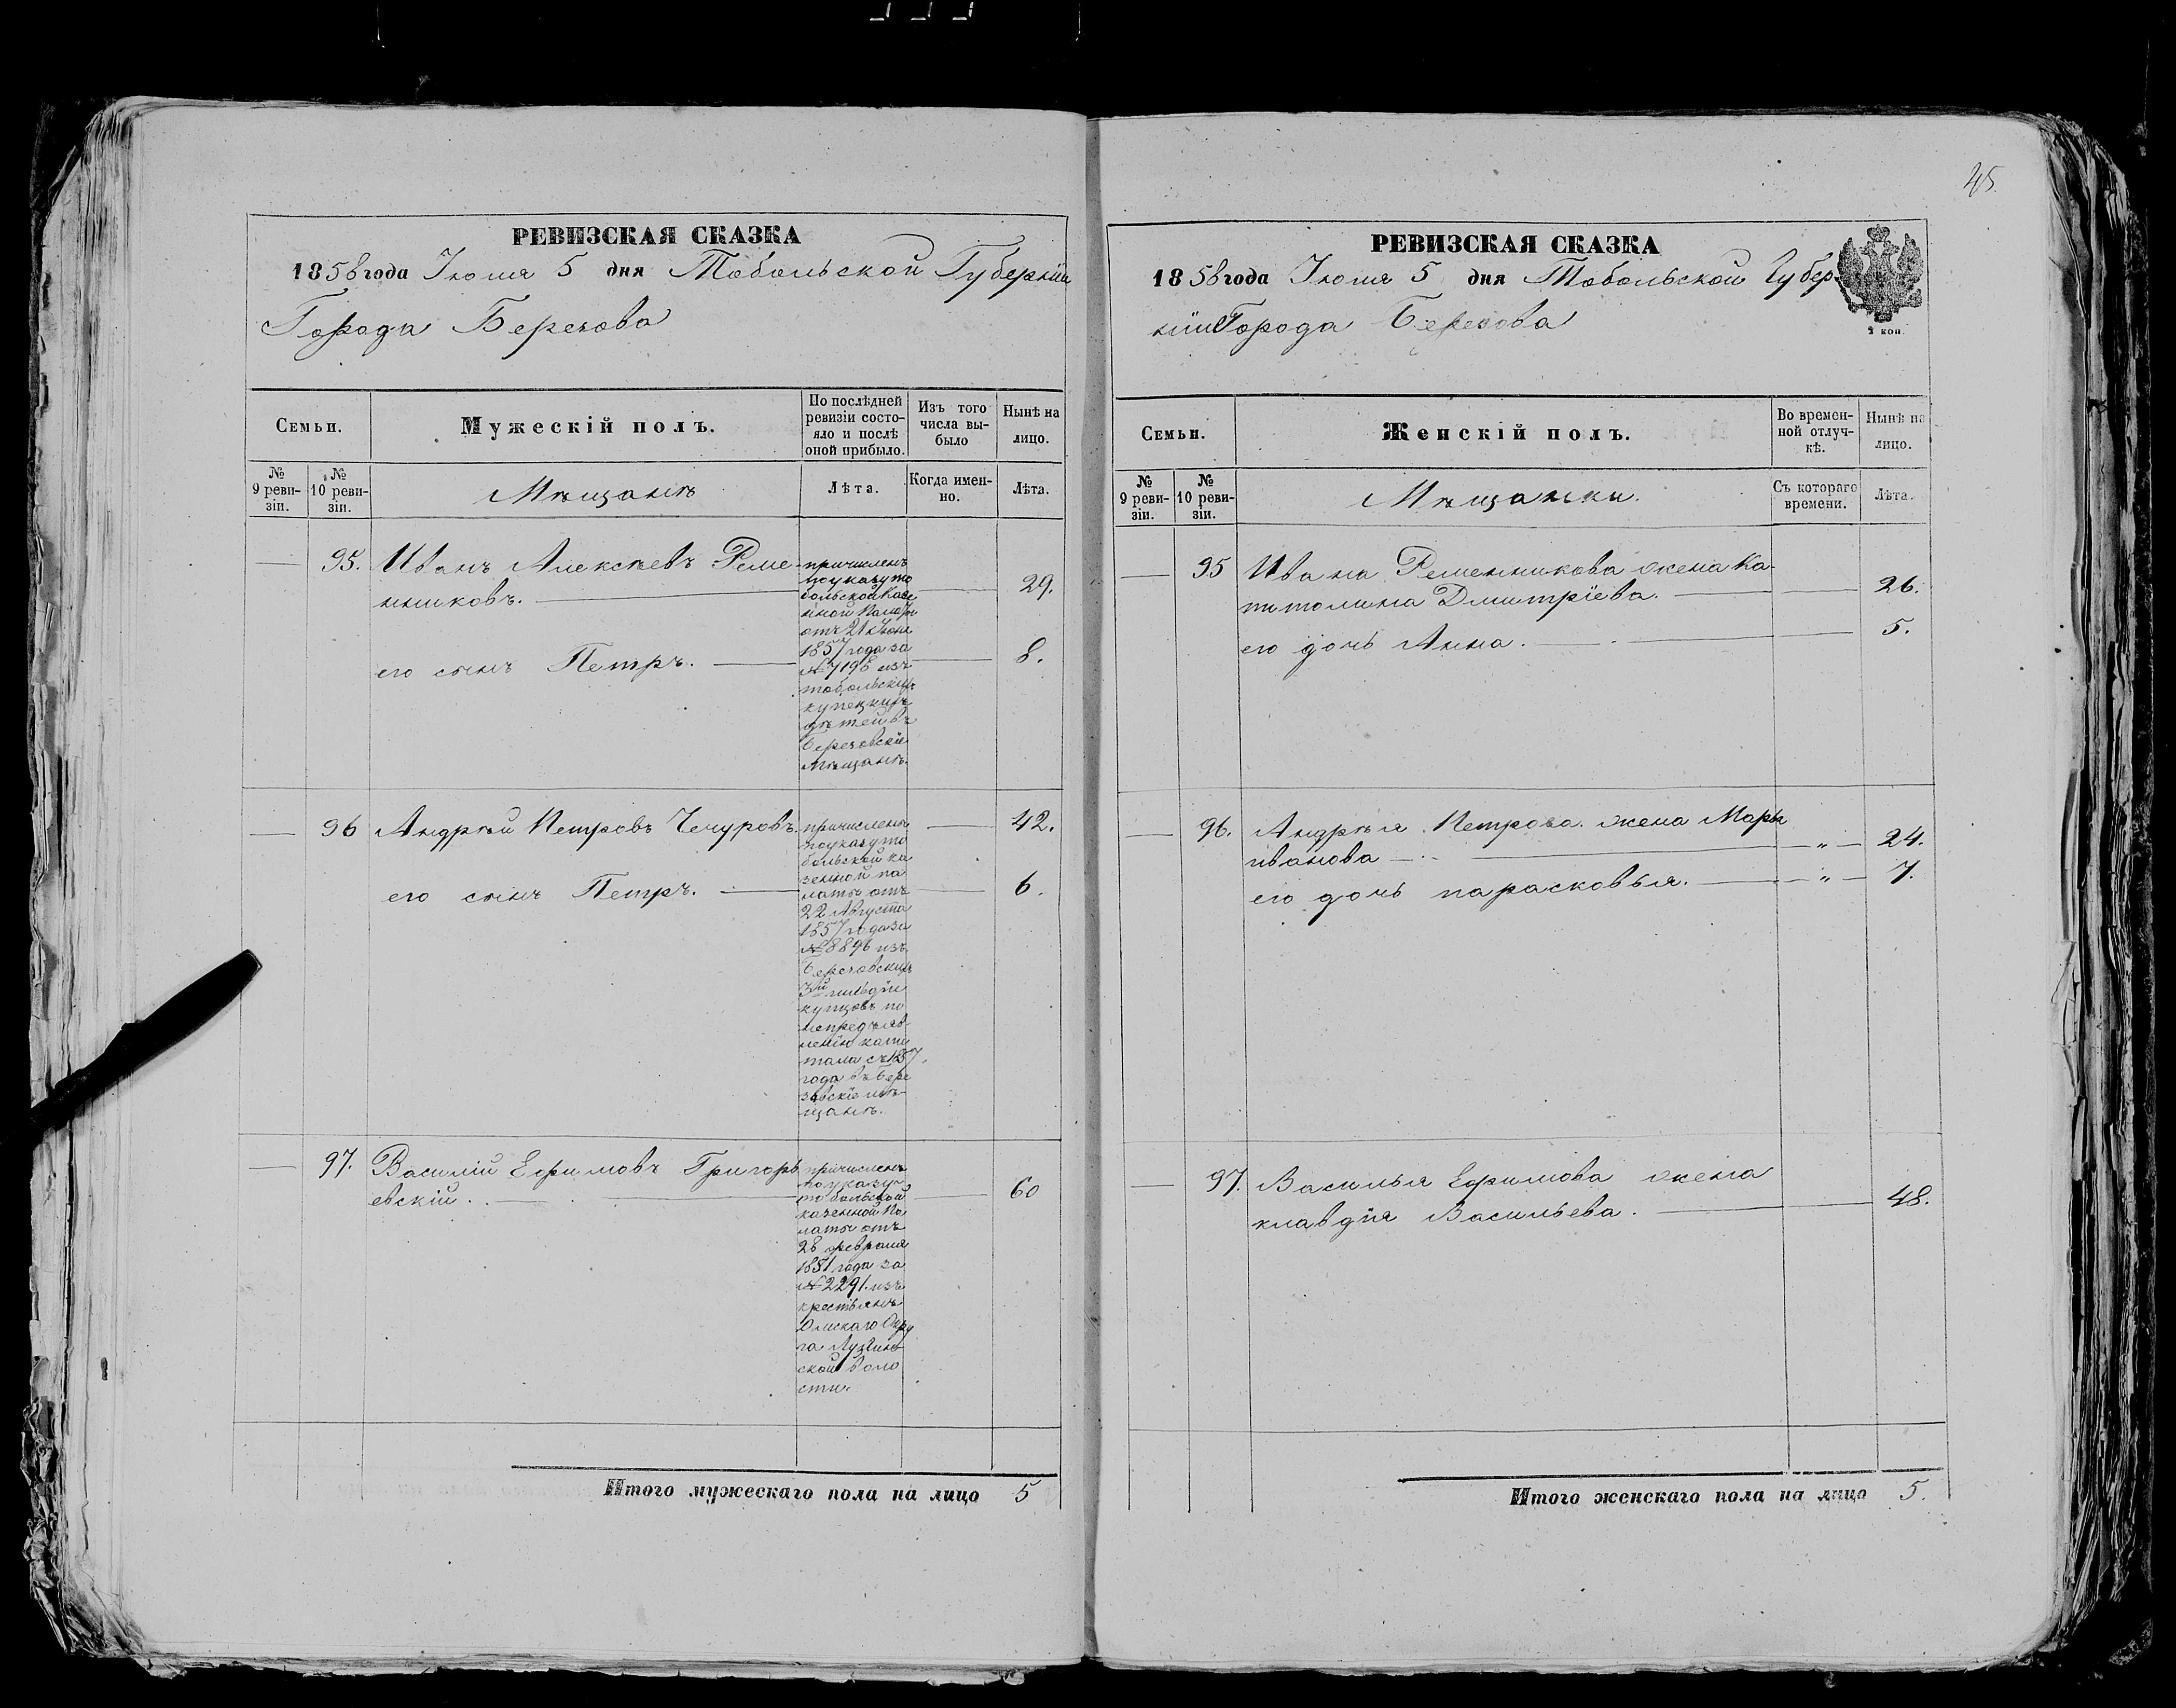 45.
РЕВИЗСКАЯ СКАЗКА
1858 года Іюля 5 дня Тобольской Губерніи
Города Березова
Семьи.
Мужескій полъ.
По послѣдней
ревизіи состо-
яло и послѣ
оной прибыло.
Изъ того
числа вы-
было
Нынѣ на
лицо.
№
9 реви-
зіи.
№
10 реви-
зіи.
Мѣщанѣ
Лѣта.
Когда имен-
но.
Лѣта.
95. Иванъ Алексѣевъ Реме-
нниковъ. 29.
его сынъ Петръ. 8.
причисленъ
по указу то
больской Казе
нной Палаты
отъ 21 Іюня
1857 года за
№ 7198 изъ
тобольскихъ
купецкихъ
дѣтей въ
березовскіе
Мѣщанѣ.
96 Андрѣй Петровъ Чечуровъ. 42.
его сынъ Петръ. 6.
причисленъ
по указу то
больской ка
зенной па
латы отъ
22 Августа
1857 года за
№ 8896 изъ
Березовскихъ
3й гильдіи
купцовъ по
непредъяв-
ленію капи
тала съ 1857
года въ Бере
зовскіе мѣ-
щанѣ.
97. Василій Ефимовъ Григорь
евскій. 60
причисленъ
по указу
тобольской
казенной Па
латы отъ
28 февраля
1851 года за
№ 2291 изъ
крестьянъ
Омскаго Окру
га
ской воло
сти.
Итого мужескаго пола на лицо 5
РЕВИЗСКАЯ СКАЗКА
1858 года Іюля 5 дня Тобольской Губер-
ніи Города Березова
2 коп.
Семьи.
Женскій полъ.
Во времен-
ной отлуч-
кѣ.
Нынѣ на
лицо.
№
9 реви-
зіи.
№
10 реви-
зіи.
Мѣщанки.
Съ котораго
времени.
Лѣта.
95 Ивана Ременникова жена Ка-
питолина Дмитріева. 26.
его дочь Анна. 5.
96. Андрѣя Петрова жена Марья
иванова „ 24.
его дочь парасковья. „ 7.
97. Василья Ефимова жена
клавдія Васильева. 48.
Итого женскаго пола на лицо 5.